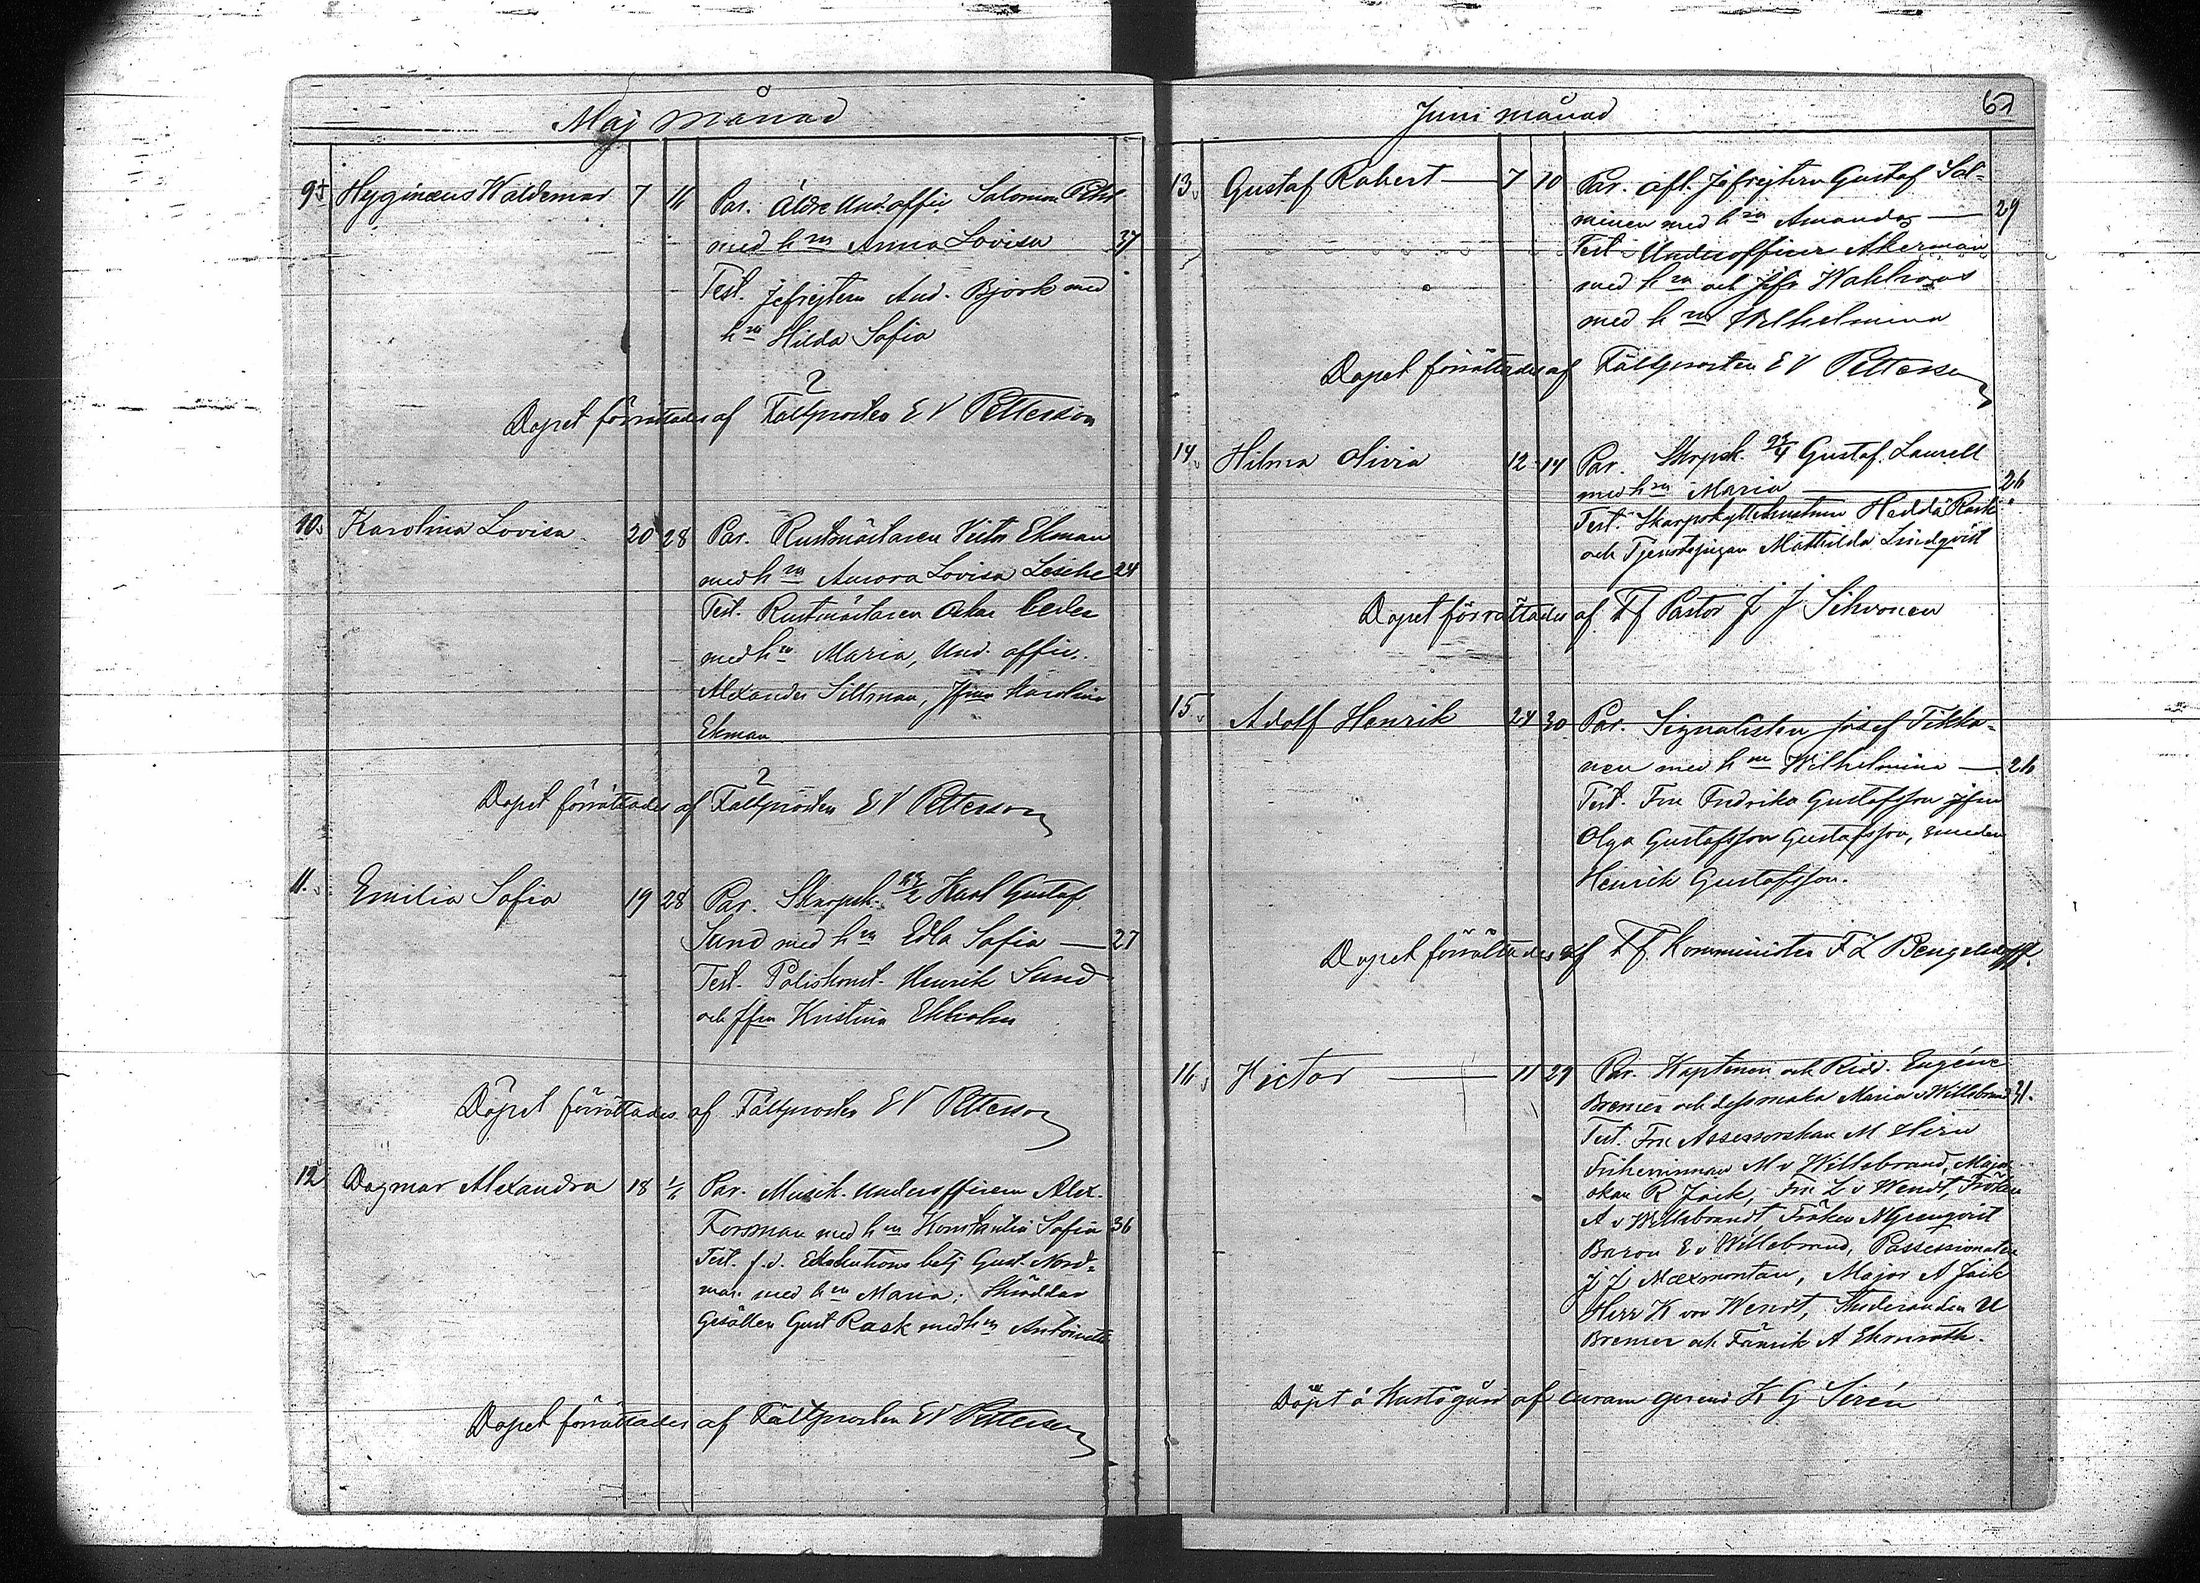 Maj månad
9 Hyginæus Waldemar 7 16 Par. Äldre Undoffic. Salomon Petter
med hn Anna Lovisa 37
Test. Jefrejtern And. Björk med
hn Hilda Sofia
Dopet förrättades af Fältprosten E V Pettersson
10 Karolina Lovisa 20 28 Par. Rustmästaren Victor Ekman
med hn Aurora Lovisa Lesche 24
Test. Rustmästaren Oskar Ceder
med hn Maria, Und. offic.
Alexander Sillman, Jfrun Karolina
Ekman
Dopet förrättades af Fältprosten E V Pettersson
11. Emilia Sofia 19 28 Par. Skarpsk. Karl Gustaf
Sund med hn Edla Sofia — 27
Test. Poliskonst. Henrik Sund
och Jfrn Kristina Ekholm
Döpet förrättades af Fältprosten E V Pettersson
12 Dagmar Alexandra 18 1/6 Par. Musik. Underofficern Alex.
Forsman med hn Konstantia Sofia 36
Test. f.d. Exekutions betj Gust. Nord=
man med hn Maria; Skräddar
Gesällen Gust Rask med hn Antoinette
Dopet förrättades af Fältprosten E V Pettersson
Juni månad
67
13 Gustaf Robert — 7 10 Par. Afl. Jefrejtern Gustaf Sal=
minen med hn Amanda — 29
Test Underofficer Åkerman
med hn och Jefr Wahlroos
med hn Wilhelmina
Dopet förrättades af Fältprosten E V Pettersson
14 Hilma Olivia 12 14 Par. Skrpsk. 93/4 Gustaf Laurell
med hn Maria — 26
Test. Skarpskyttehustrun Hedda Rask
och Tjenstepigan Mathilda Lindqvist
Dopet förrättades af Tf Pastor J J Sihvonen
15 Adolf Henrik 24 30 Par. Signalisten Josef Tikka=
nen med hn Wilhelmina — 26
Test. Fru Fredrika Gustafsson jfrn
Olga Gustafsson Gustafsson, smeden
Henrik Gustafsson.
Dopet förrättades af Tf. Komminister F L Bengelsdorff.
16 Victor — 11 29 Par. Kaptenen och Ridd. Eugéne
Bremer och dess maka Maria v Willebrand 31.
Test. Fru Assessorskan M Hirn
Friherrinnan M v Willebrand, Major=
skan R Jack, Fru L v Wendt, Fröken
A v Willebrandt, Fröken N Grenqvist
Baron E v Willebrand, Possessionaten
J J Mæxmontan, Major A Jack
Herr K von Wendt, Studeranden U
Bremer och Fänrik A Ehrnrooth.
Döpt å Kustö gård af curam gerens K G Sirén